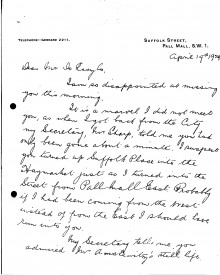 TELEPHONE: GERRARD 2211.
SUFFOLK STREET,
PALL MALL, S.W. 1.
April 19th 1924
Dear Mr
I am so disappointed at missing
you this morning.
It is a marvel I did not meet
you, as when I got back from the City
my Secretary, Mr. Sharp, told me you had
only been gone about a minute. I suspect
you turned up Suffolk Place into the
Haymarket just as I turned into the
Street from Pall Mall East. Probably
if I had been coming from the West
instead of from the East I should have
run into you.
My Secretary tells me you
admired Mr. still life